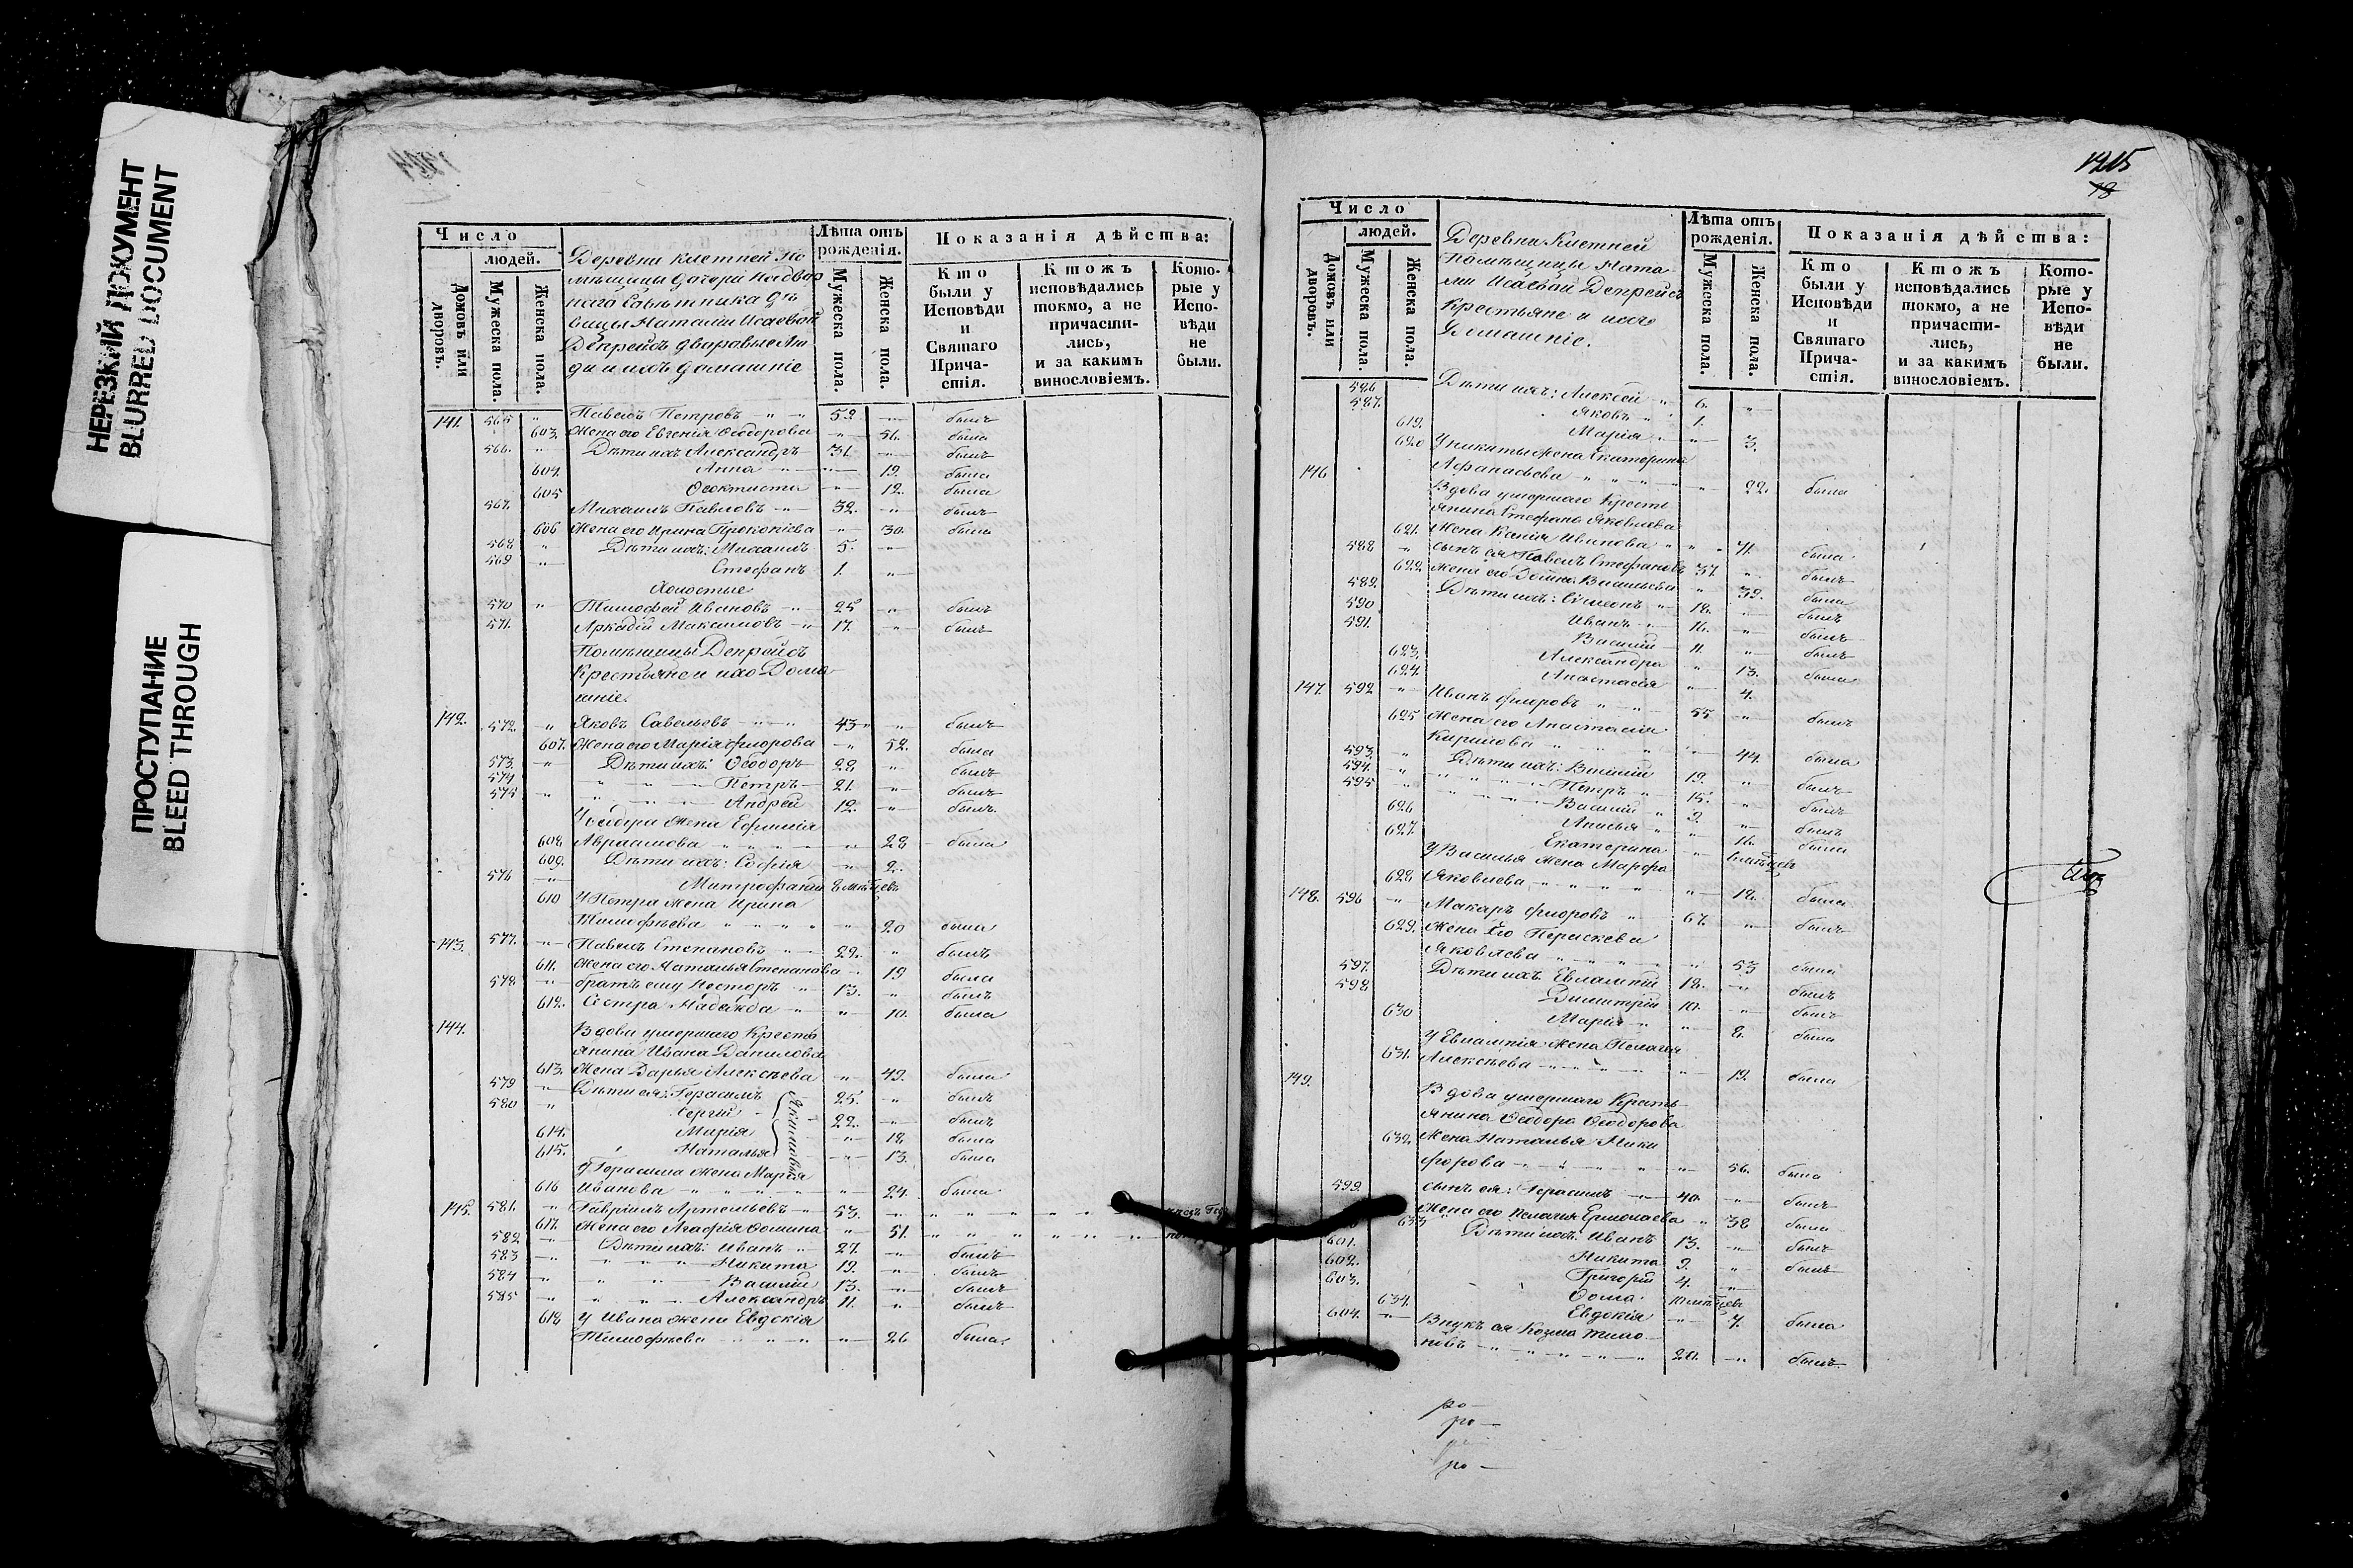 НЕРЕЗКИЙ ДОКУМЕНТ
BLURRED DOCUMENT
ПРОСТУПАНИЕ
BLEED THROUGH
Число
людей.
Домовъ или дворовъ.
Мужеска пола.
Женска пола.
Деревни Клетней По
мѣщицы дочери Надвор
наго Совѣтника Дѣ
вицы Наталіи Исаевой
Депрейсъ дворовые Лю
ди и ихъ домашніе
Лѣта отъ рожденія.
Мужеска пола.
Женска пола.
Показанія дѣйства:
Кто были у Исповѣди и Святаго Прича-стія.
Ктожъ исповѣдались токмо, а не причасти-лись, и за какимъ винословіемъ.
Кото-рые у Испо-вѣди не были.
141. 565 " Павелъ Петровъ 59 былъ
603. Жена его Евгенія Ѳеодорова 56. была
566. Дѣти ихъ Александръ 31. былъ
604. Анна 19. была
605 Ѳеоктиста 12. была
567. Михаилъ Павловъ 32. былъ
606 Жена его Ирина Прокопіева 30. была
568 Дѣти ихъ: Михаилъ 5.
569 Стефанъ 1.
Холостые
570 Тимофей Ивановъ 25 былъ
571. Аркадій Максимовъ 17. былъ
Помѣщицы Депрейсъ
Крестьяне и ихъ Дома
шніе.
142. 572. Яковъ Савельевъ 43 былъ
607. Жена его Марія 52. была
573. Дѣти ихъ: Ѳеодоръ 22. былъ
574 Петръ 21. былъ
575 Андрей 12. былъ
У Ѳеодора Жена Ефимія
608 Авраамова 22 была
609. Дѣти ихъ: Софія 2.
576 Митрофаній 8 мѣсяцевъ
610 У Петра Жена Ирина
Тимофѣева 20 была
143. 577. Павелъ Степановъ 22. былъ
611. Жена его Наталья Степанова 19 была
578 братъ ему Несторъ 13. былъ
612. Сестра Надежда 10. была
144. Вдова умершаго Кресть
янина Ивана Данилова
613. Жена Дарья Алексѣева 49. была
579 Дѣти ея: Герасимъ 25. былъ
580 Сергій 22. былъ
614. Марія 18 была
615. Наталья 13. была
Якимовы
У Герасима жена Марія
616 Иванова 24. была
145. 581. Гавріилъ Артемьевъ 53.
617. Жена его Агафія Ѳомина 51.
582 Дѣти ихъ: Иванъ 27. былъ
583 Никита 19. былъ
584 Василій 13. былъ
585 Александръ 11. былъ
618 У Ивана жена Евдокія
Тимофѣева 26 была.
1215
Число
людей.
Домовъ или дворовъ.
Мужеска пола.
Женска пола.
Деревни Клетней
Помѣщицы Ната
ліи Исаевой Депрейсъ
Крестьяне и ихъ
Домашніе.
Лѣта отъ рожденія.
Мужеска пола.
Женска пола.
Показанія дѣйства:
Кто были у Исповѣди и Святаго Прича-стія.
Ктожъ исповѣдались токмо, а не причасти-лись, и за какимъ винословіемъ.
Кото-рые у Испо-вѣди не были.
586 Дѣти ихъ: Алексѣй 6.
587. Яковъ 1.
619. Марія 3.
620 У Никиты Жена Екатерина
Афанасьева 22. была
146 Вдова умершаго Кресть
янина Стефана Яковлева
621. Жена Ивановa 71. была
588 сынъ ея Павелъ Стефановъ 37. былъ
622 жена его Васильева 39. была
589. Дѣти ихъ: Симеонъ 18. былъ
590 Иванъ 16. былъ
591. Василій 11. былъ
623. Александра 13. была
624. Анастасія 4.
147. 592 Иванъ 55 былъ
625 Жена его Анастасія
Кирилова 44. была
593. Дѣти ихъ: Василій 19. былъ
594. Петръ 15. былъ
595 Василій 9. былъ
626 Анисья 16. была
627. Екатерина мѣсяцевъ
У Василья жена Марфа
628 Яковлева 18. была
148. 596 Макаръ 67. былъ
629. Жена его Параскева
Яковлева 53 была
597. Дѣти ихъ Евлампій 18. былъ
598 Димитрій 10. былъ
630 Марія 8. была
У Евлампія жена Пелагея
631. Алексѣева 19. была
149. Вдова умершаго Кресть
янина Ѳеодора Ѳеодорова
632 Жена Наталья Ники
форова 56. была
599. сынъ ея: Герасимъ 40. былъ
633 Жена его Пелагія Ермолаева 38 была
Дѣти ихъ: Иванъ 13. былъ
601. Никита 9. былъ
602. Григорій 4.
603. Ѳома 10 мѣсяцевъ
634. Евдокія 7. была
604. Внукъ ея Козма 20. былъ
ро
ро
ро